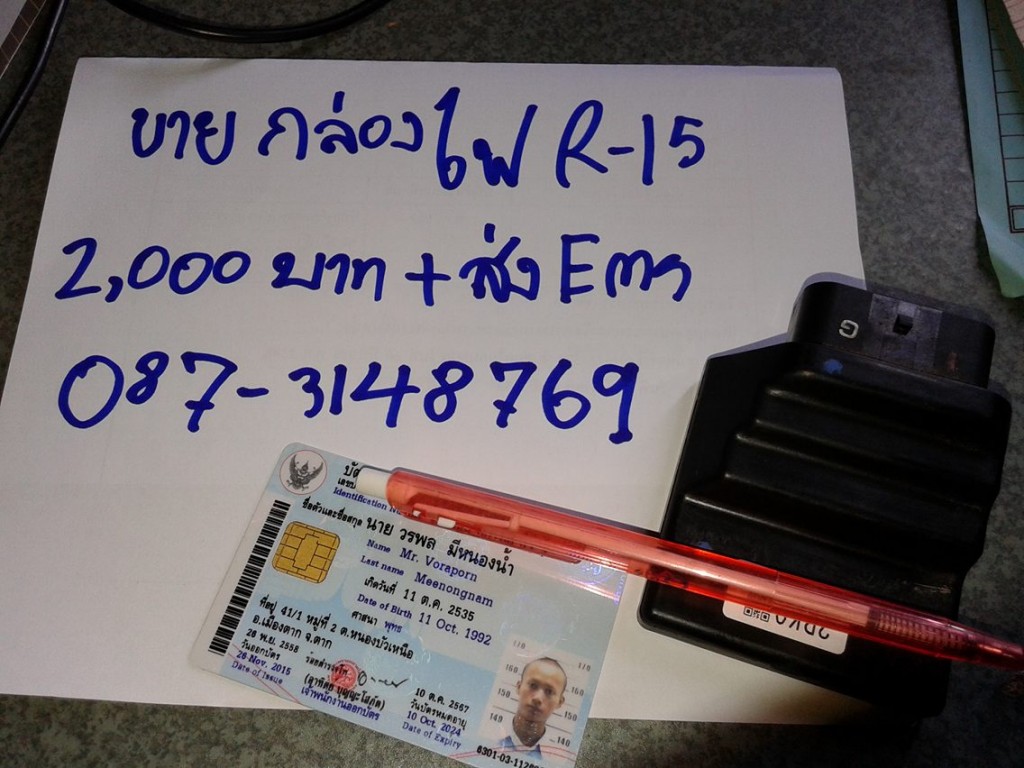 ขาย กล่องไฟ R-15
2,000 บาท + ส่ง Ems
087-3148769
G
Identification
ชื่อตัวและชื่อสกุล นาย วรพล มีหนองน้ำ
Name Mr. Voraporn
Last name Meenongnam
เกิดวันที่ 11 ต.ค. 2535
Date of Birth 11 Oct. 1992
ศาสนา พุทธ
ที่อยู่ 41/1 หมู่ที่ 2 ต.หนองบัวเหนือ
อ.เมืองตาก จ.ตาก
26 พ.ย. 2558
วันออกบัตร
26 Nov. 2015
Date of Issue
เจ้าพนักงานออกบัตร
10 ต.ค. 2567
วันบัตรหมดอายุ
10 Oct. 2024
Date of Expiry
170 170
160 160
150 150
140 140
2PK0